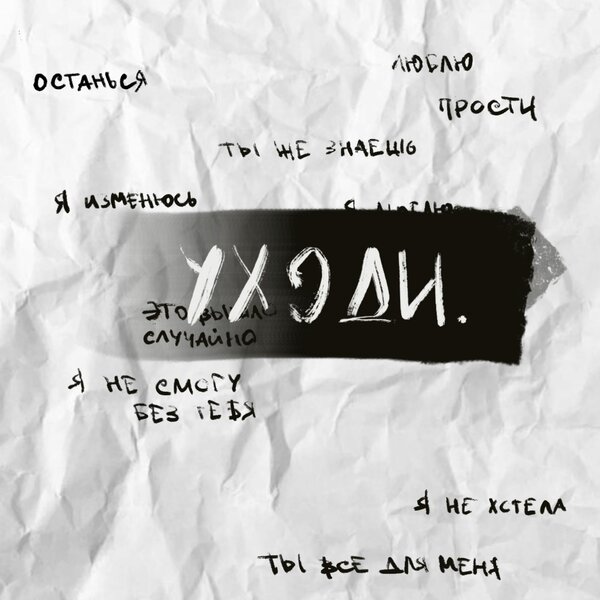 ОСТАНЬСЯ
ЛЮБЛЮ
ПРОСТИ
ТЫ ЖЕ ЗНАЕШЬ
Я ИЗМЕНЮСЬ
Я ЛЮБЛЮ
УХОДИ.
ЭТО БЫЛО
СЛУЧАЙНО
Я НЕ СМОГУ
БЕЗ ТЕБЯ
Я НЕ ХОТЕЛА
ТЫ ВСЕ ДЛЯ МЕНЯ